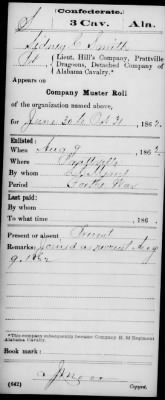 (Confederate.)
S 3 Cav. Ala.
Sidney E Smith
Pvt Lieut. Hill's Company, Prattville
Dragoons, Detached Company of
Alabama Cavalry.*
Appears on
Company Muster Roll
of the organization named above,
for June 30 to Oct 31, 1862.
Enlisted:
When Aug 9, 1862.
Where Prattville
By whom
Period For the War
Last paid:
By whom
To what time , 186 .
Present or absent Present
Remarks: Joined as recruit Aug
9. 1862
*This company subsequently became Company H, 3d Regiment
Alabama Cavalry.
Book mark:
(642) Copyist.